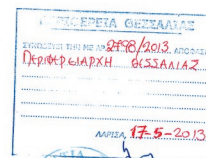 ΠΕΡΙΦΕΡΕΙΑ ΘΕΣΣΑΛΙΑΣ
ΣΥΝΟΔΕΥΕΙ ΤΗΝ ΜΕ ΑΡ. 2798/2013 ΑΠΟΦΑΣΗ
ΠΕΡΙΦΕΡΕΙΑΡΧΗ ΘΕΣΣΑΛΙΑΣ
ΛΑΡΙΣΑ, 17-5-2013